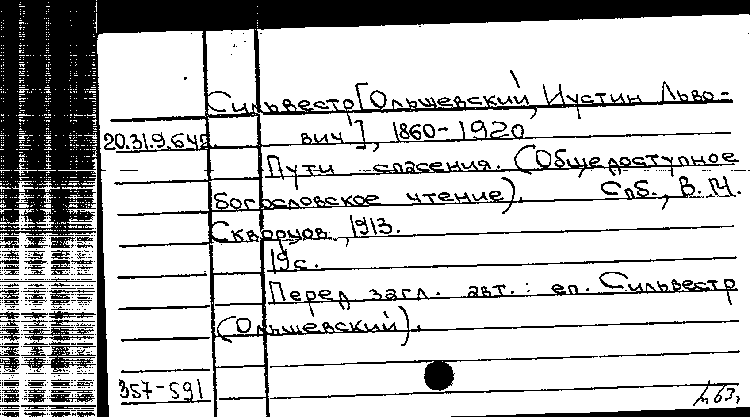 Сильвестр [Ольшевский, Иустин Льво-
20.31.9.642. вич], 1860-1920
Пути спасения. (Общедоступное
богословское чтение). Спб., В. М.
Скворцов, 1913.
19с.
Перед загл. авт.: еп. Сильвестр
(Ольшевский).
357-591